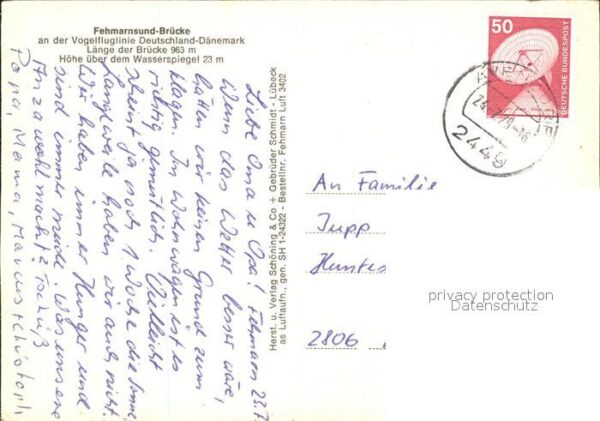 Fehmarnsund-Brücke
an der Vogelfluglinie Deutschland-Dänemark
Länge der Brücke 963 m
Höhe über dem Wasserspiegel 23 m
Fehmarn 23.7.
Liebe Oma u. Opa!
Wenn das Wetter besser wäre,
hätten wir keinen Grund zum
klagen. Im Wohnwagen ist es
richtig gemütlich. Vielleicht
scheint ja noch 1 Woche die Sonne.
Langweile haben wir auch nicht.
Wir haben immer Hunger und
sind immer müde. Was unsere
wohl macht? Tschüß
Papa, Mama, Marcus + Christoph
Herst. u. Verlag Schöning & Co + Gebrüder Schmidt - Lübeck
as Luftaufn., gen. SH 1-24322 - Bestellnr. Fehmarn Luft 3402
50
DEUTSCHE BUNDESPOST
2449
An Familie
Jupp
Huntes
2806
privacy protection
Datenschutz